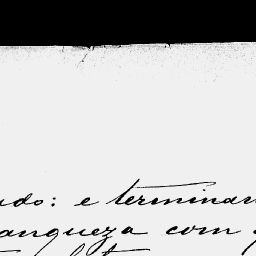 ado: e terminan
anqueza com